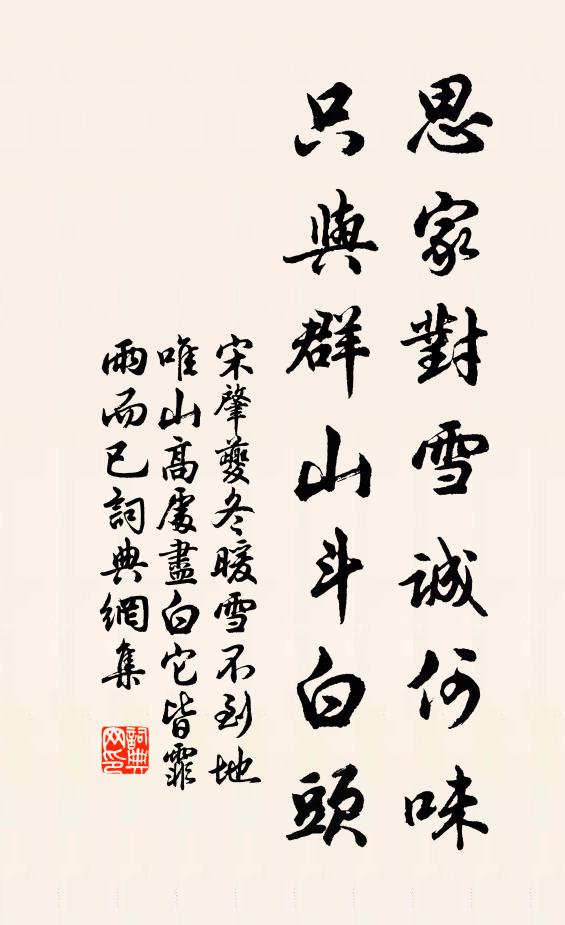 思家對雪誠何味
只與群山斗白頭
宋肇夔冬暖雪不到地
唯山高處盡白它皆霏
雨而已詞典網集
詞典
网印